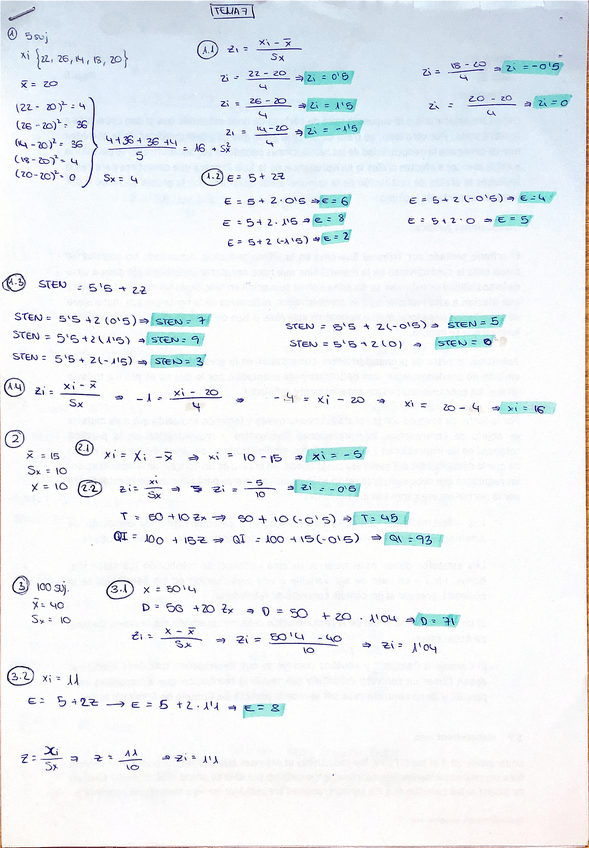 TEMA 7
① 5 suj
xi {22, 26, 14, 18, 20}
x̄ = 20
(22 - 20)² = 4
(26 - 20)² = 36
(14 - 20)² = 36
(18 - 20)² = 4
(20 - 20)² = 0
4 + 36 + 36 + 4 / 5 = 16 → Sx²
Sx = 4
1.1 Zi = xi - x̄ / Sx
Zi = 22 - 20 / 4 ⇒ Zi = 0'5
Zi = 26 - 20 / 4 ⇒ Zi = 1'5
Zi = 14 - 20 / 4 ⇒ Zi = -1'5
Zi = 18 - 20 / 4 ⇒ Zi = -0'5
Zi = 20 - 20 / 4 ⇒ Zi = 0
1.2 E = 5 + 2Z
E = 5 + 2 · 0'5 ⇒ E = 6
E = 5 + 2 · 1'5 ⇒ E = 8
E = 5 + 2 (-1'5) ⇒ E = 2
E = 5 + 2 (-0'5) ⇒ E = 4
E = 5 + 2 · 0 ⇒ E = 5
1.3 STEN = 5'5 + 2Z
STEN = 5'5 + 2 (0'5) ⇒ STEN = 7
STEN = 5'5 + 2 (1'5) ⇒ STEN = 9
STEN = 5'5 + 2 (-1'5) ⇒ STEN = 3
STEN = 5'5 + 2 (-0'5) ⇒ STEN = 5
STEN = 5'5 + 2 (0) ⇒ STEN =
1.4 Zi = xi - x̄ / Sx ⇒ -1 = xi - 20 / 4 ⇒ -4 = xi - 20 ⇒ xi = 20 - 4 ⇒ xi = 16
②
x̄ = 15
Sx = 10
X = 10
2.1 xi = Xi - x̄ ⇒ xi = 10 - 15 ⇒ xi = -5
2.2 Zi = xi / Sx ⇒ Zi = -5 / 10 ⇒ Zi = -0'5
T = 50 + 10 Zx ⇒ 50 + 10 (-0'5) ⇒ T = 45
QI = 100 + 15Z ⇒ QI = 100 + 15 (-0'5) ⇒ QI = 93
③ 100 suj.
x̄ = 40
Sx = 10
3.1 X = 50'4
D = 50 + 20 Zx ⇒ D = 50 + 20 · 1'04 ⇒ D = 71
Zi = x - x̄ / Sx ⇒ Zi = 50'4 - 40 / 10 ⇒ Zi = 1'04
3.2 xi = 11
E = 5 + 2Z → E = 5 + 2 · 1'1 ⇒ E = 8
Z = xi / Sx ⇒ Z = 11 / 10 ⇒ Zi = 1'1